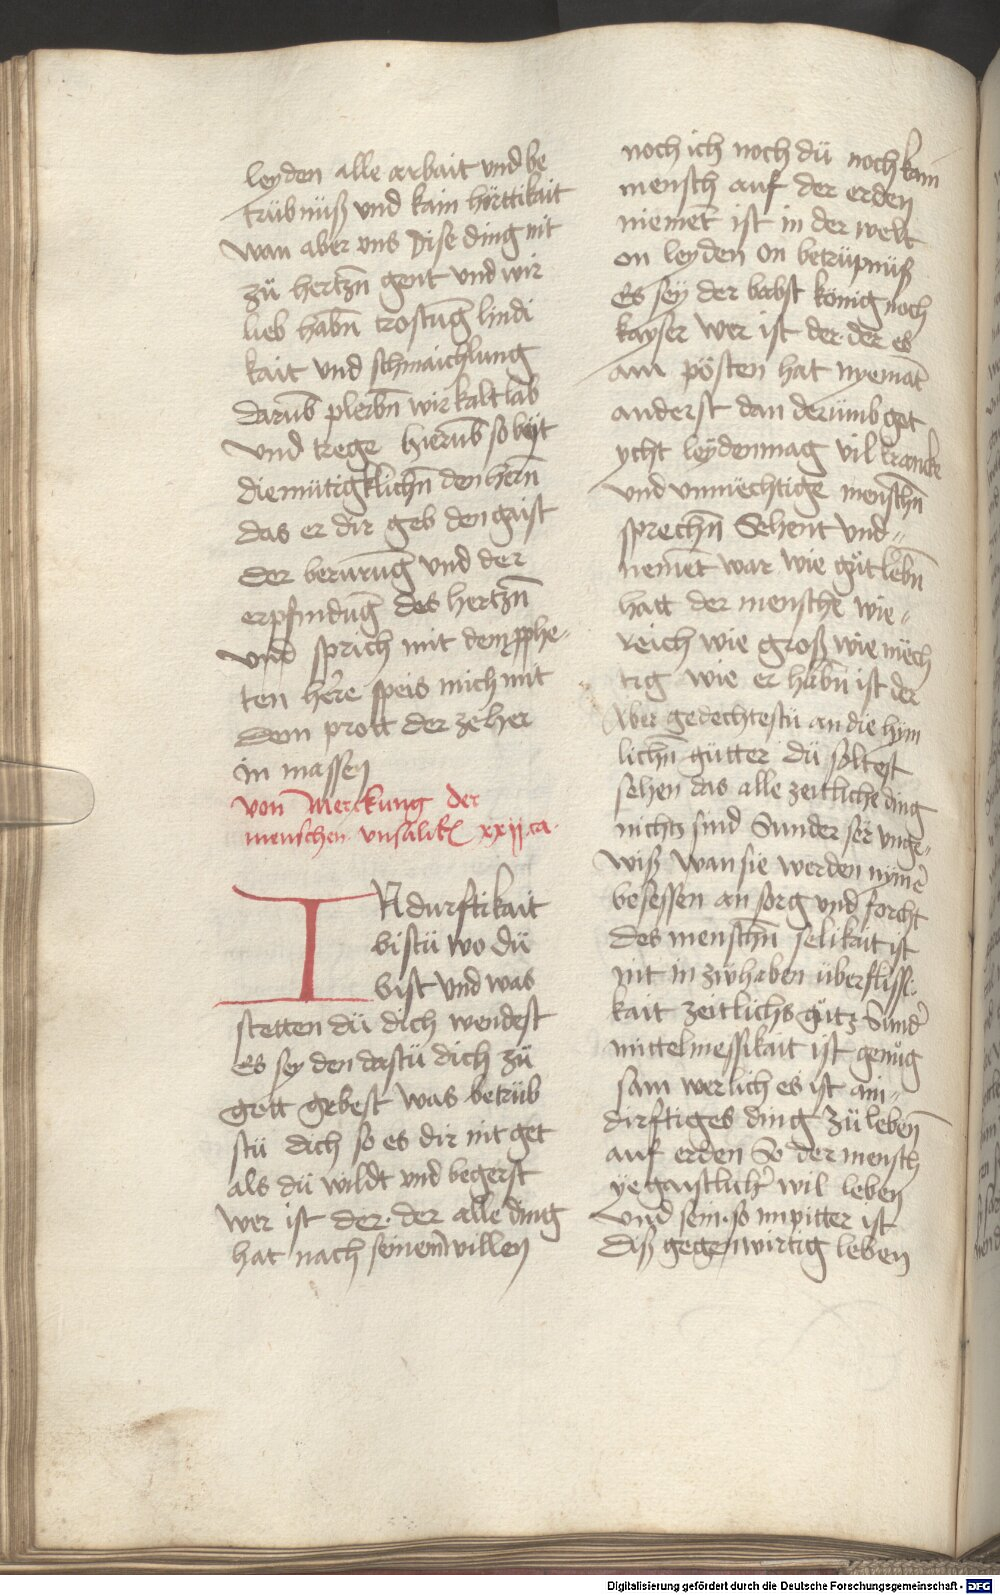 leyden alle arbait vnd be
trübnüß vnd kain hërttikait
wan aber vns dise ding nit
zü hertzn̄ gent vnd wir
lieb habn̄ trostūg lindi
kait vnd schmaichlung
darūb plerbn̄ wir kalt lab
vnd trege hierūb so bÿt
diemütigklichn̄ den hern̄
das er dir geb den gaist
der berürūg vnd der
erpfindūg des hertzn̄
vnd sprich mit dem pphe-
ten herre speis mich mit
dem prott der zeher
in massen
von merckung der
menschen vnsälik xxij ca.
IN durftikait
bistü wo dü
bist vnd was
stetten dü dich wendest
Es sey den dastü dich zü
gott gebest was betrüb
stü dich so es dir nit get
als dü wildt vnd begerst
wer ist der. der alle ding
hat nach seinem willen
noch ich noch dü noch kain
mensch auf der erden
niemet̄ ist in der welt
on leyden on betrüpnüß
Es seÿ der babst könig noch
kayser wer ist der. der es
am pösten hat nyemāt
anderst dan der ümb get
ycht leÿden mag vil krancke
vnd vnmechtige menschn̄
sprechn̄ Sehent vnd-
nemet̄ war wie gůt lebn̄
hatt der mensche wie-
reich wie groß wie mëch
tig wie er habn̄ ist der
Aber gedechtestü an die hÿm
lichn̄ gütter dü soltest
sehen das alle zeitliche ding
nichtz sind Sunder ser vnge-
wiß wan sie werden nÿmer
besessen an sorg vnd forcht
des menschn̄ selikait ist
nit in zwhaben überflissi
kait zeitlichs gůtz Sunder
mittelmessikait ist genůg
sam werlich es ist ain-
dirftiges ding zü leben
auf erden So der mensch
ye gaistlicher wil leben
vnd sein. so im pitter ist
diß gegenwirtig leben
Digitalisierung gefördert durch die Deutsche Forschungsgemeinschaft - DFG